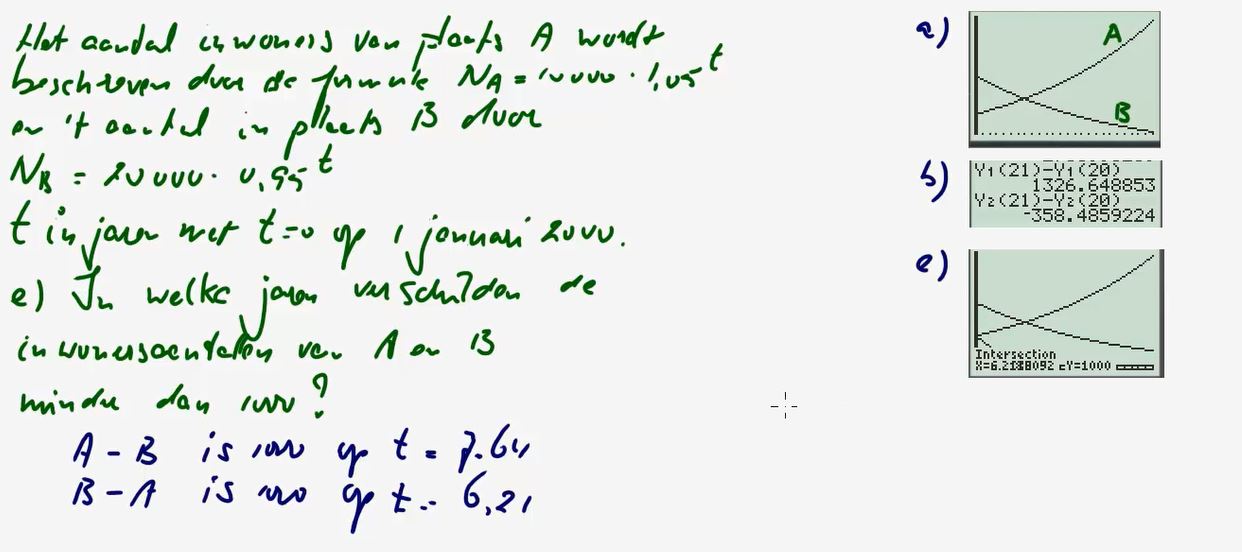 Het aantal inwoners van plaats A wordt
beschreven door de formule NA = 10000 · 1,05^t
en 't aantal in plaats B door
NB = 20000 · 0,95^t
t in jaren met t=0 op 1 januari 2000.
e) In welke jaren verschilden de
inwonersaantallen van A en B
minder dan 1000?
A - B is 1000 op t = 7.64
B - A is 1000 op t = 6,21
a)
A
B
b)
Y1(21)-Y1(20)
1326.648853
Y2(21)-Y2(20)
-358.4859224
e)
Intersection
Y=1000